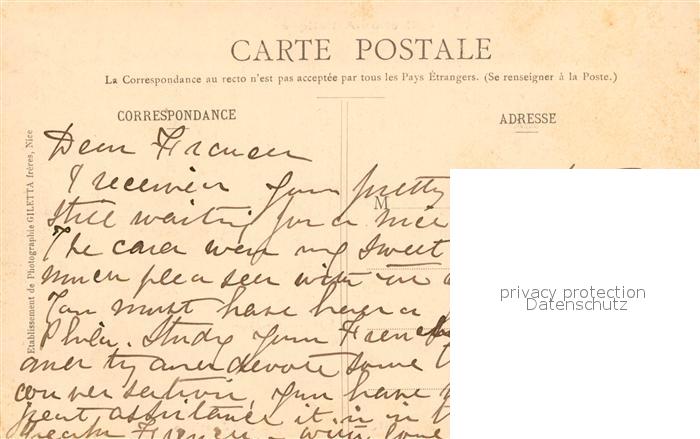 CARTE POSTALE
La Correspondance au recto n'est pas acceptée par tous les Pays Étrangers. (Se renseigner à la Poste.)
CORRESPONDANCE
ADRESSE
Etablissement de Photographie GILETTA frères, Nice
M
Dear Frances
I received your pretty
still waiting for a nice
The card were my sweet
much pleased with it
You must have had a
Phila. Study your French
and try and devote some
conversation, you have
great assistance it is in
French - with love
privacy protection
Datenschutz